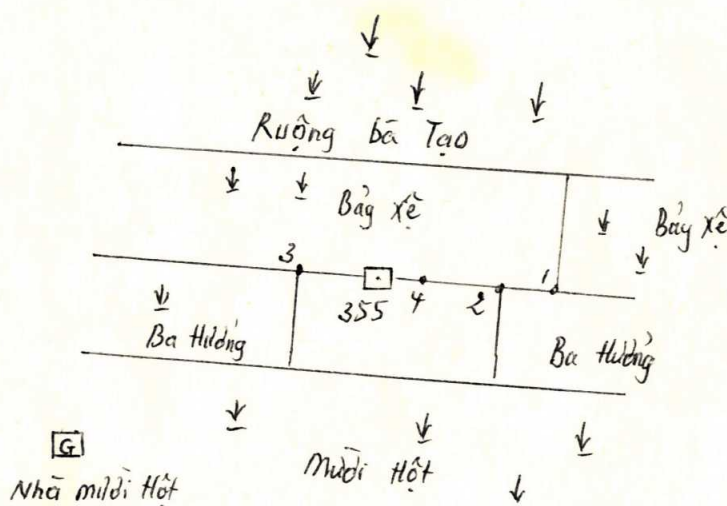 Ruộng bà Tạo
Bảy Xệ
Bảy Xệ
3
355
4
2
1
Ba Hưởng
Ba Hưởng
G
Mười Hột
Nhà mười Hột